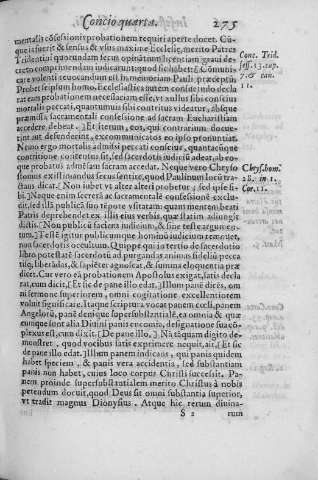 Concio quarta. 275
mentalis cõfessionis probationem requiri aperte docet. Cũ-
que is fuerit & sensus & vsus maxime Ecclesię, merito Patres
Tridentini quorundam secus opinatium licentiam graui de-
creto comprimendam iudicantũ quod sic habet: [Cõmunic-
care volenti reuocandum est in memoriam Pauli præceptũ
Probet seipsum homo. Ecclesiastica autem consuetudo decla-
rat eam probationem necessariam esse, vt nullus sibi conscius
mortalis peccati, quantumuis sibi contritus videatur, absque
præmissa sacramentali confessione ad sacram Eucharistiam
accedere debeat. ] Et iterum, eos, qui contrarium docue-
rint aut defenderint, excommunicatos eo ipso pronuntiat.
Nemo ergo mortalis admissi peccati conscius, quantacũque
contritione contentus sit, sed sacerdotis iudiciũ adeat, ab eo-
que probatus admensam sacram accedat. Neque vero Chryso
stomus existimandus secus sentire, quod Paulinum locũ tra-
ctans dicat. [ Non iubet vt alter alteri probetur; sed ipse si-
bi. ] Neque enim secreta ac sacramentalē confessionē exclu-
dit, sed illã publicã suo tẽpore vsitatam: quam mentem beati
Patris deprehendet ex illis eius verbis, quæ statim adiungit
dicẽs. [ Non publicũ faciens iudicium, & sine teste argumen-
tum. ] Testē igitur publicumque hominũ iudicium remouet,
non sacerdotis occultum. Quippe qui in tertio de sacerdotio
libro potestatẽ sacerdotũ ad purgandas animas fideliũ pecca-
tis, liberaldas, & sapiēter agnoscat, & summa eloquentia præ
dicet. Cur vero eã probationem Apostolus exigat, satis decla
rat, cum dicit, [ Et sic de pane illo edat. ] Illum panē dicēs, om
ni sermone superiorem, omni cogitatione excellentiorem
voluit significare. Itaque scriptura vocat panem cœli, panem
Angelorũ, panē denique supersubstantialē, ea omnia & quæ
cunque sunt alia Diuini panis encomia, designatione sua cõ-
plexus est, cum dixit. [ De pane illo. ] Nã tãquam digito de-
monstret, quod vocibus satis exprimere nequit, ait, [ Et sic
de pane illo edat. ] Illum panem indicans, qui panis quidem
habet speciem, & panis vera accidentia, sed substantiam
panis non habet, cuius loco corpus Christi successit. Pa-
nem proinde supersubstantialem merito Christus à nobis
petendum docuit, quod Deus sit omni substantia superior,
vt tradit magnus Dionysius. Atque hic rerum diuina-
S 2 rum
Conc. Trid.
sess. 13. cap.
7. & can.
11.
Chrys. hom.
28. in 1.
Cor. 11.